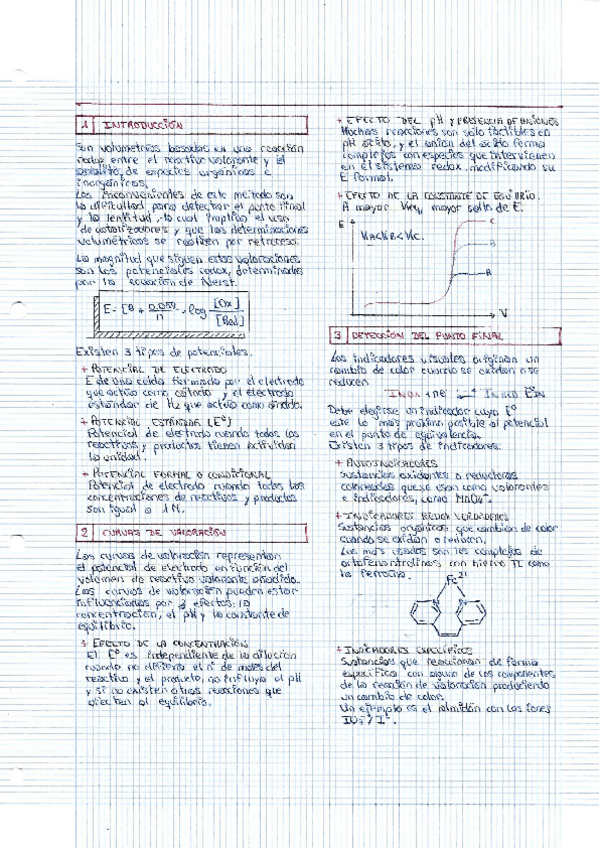 1 INTRODUCCIÓN
Son volumetrías basadas en una reacción
redox entre el reactivo valorante y el
analito, de especies orgánicas e
inorgánicas.
Los inconvenientes de este método son
la dificultad para detectar el punto final
y la lentitud, lo cual implica el uso
de catalizadores y que las determinaciones
volumétricas se realicen por retroceso.
La magnitud que siguen estas valoraciones
son los potenciales redox, determinados
por la ecuación de Nerst.
E = E° + 0.059/n · log [Ox]/[Red]
Existen 3 tipos de potenciales.
+ POTENCIAL DE ELECTRODO
E de una celda formada por el electrodo
que actúa como cátodo y el electrodo
estándar de H₂ que actúa como ánodo.
+ POTENCIAL ESTÁNDAR (E°)
Potencial de electrodo cuando todos los
reactivos y productos tienen actividad
la unidad.
+ POTENCIAL FORMAL O CONDICIONAL
Potencial de electrodo cuando todas las
concentraciones de reactivos y productos
son igual a 1M.
2 CURVAS DE VALORACIÓN
Las curvas de valoración representan
el potencial de electrodo en función del
volumen de reactivo valorante añadido.
Las curvas de valoración pueden estar
influenciadas por efectos: la
concentración, el pH y la constante de
equilibrio.
+ EFECTO DE LA CONCENTRACIÓN
El E° es independiente de la dilución
cuando no difiera el nº de moles del
reactivo y el producto, no influya el pH
y si no existen otras reacciones que
afecten al equilibrio.
+ EFECTO DEL pH Y PRESENCIA DE ANIONES
Muchas reacciones son sólo factibles en
pH ácido, y el anión del ácido forma
complejos con especies que intervienen
en el sistema redox, modificando su
E formal.
+ EFECTO DE LA CONSTANTE DE EQUILIBRIO.
A mayor Keq, mayor salto de E.
E
KA<KB<KC.
C
B
A
V
3 DETECCIÓN DEL PUNTO FINAL
Los indicadores visuales originan un
cambio de color cuando se oxidan o se
reducen
InOx + ne ⇌ InRed E°In
Debe elegirse un indicador cuyo E°
esté lo más próximo posible al potencial
en el punto de equivalencia.
Existen 3 tipos de indicadores.
+ AUTOINDICADORES
Sustancias oxidantes o reductoras
coloreadas que se usan como valorantes
e indicadores, como MnO₄⁻.
+ INDICADORES REDOX VERDADEROS
Sustancias orgánicas que cambian de color
cuando se oxidan o reducen.
Los más usados son los complejos de
ortofenantrolinas con hierro II como
la ferroína.
Fe²⁺
N N
+ INDICADORES ESPECÍFICOS
Sustancias que reaccionan de forma
específica con alguno de los componentes
de la reacción de valoración produciendo
un cambio de color.
Un ejemplo es el almidón con los iones
IO₃⁻/I⁻.